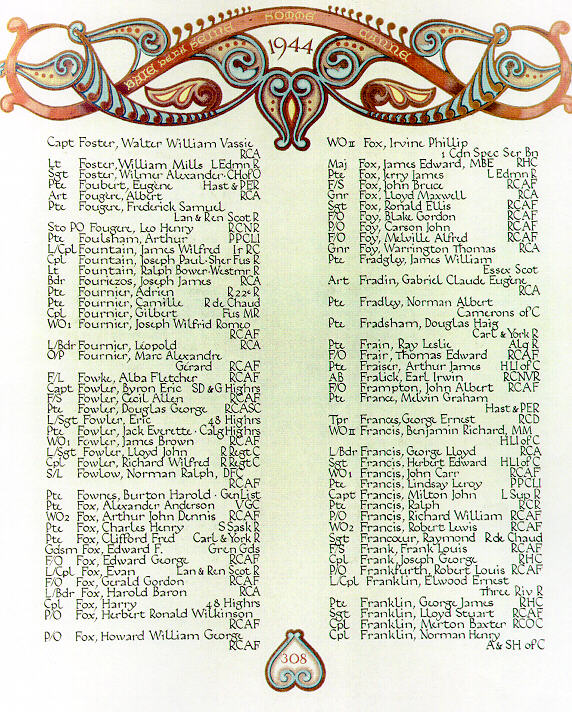 1944
Capt Foster, Walter William Vassie
RCA
Lt Foster, William Mills L Edmn R
Sgt Foster, Wilmer Alexander · CH of O
Pte Foubert, Eugène Hast & PER
Art Fougère, Albert RCA
Pte Fougere, Frederick Samuel
Lan & Ren Scot R
Sto PO Fougere, Leo Henry RCNR
Pte Foulsham, Arthur PPCLI
L/Cpl Fountain, James Wilfred Ir RC
Cpl Fountain, Joseph Paul · Sher Fus R
Lt Fountain, Ralph Bower · Westmr R
Bdr Fouriezos, James RCA
Pte Fournier, Adrien R 22e R
Pte Fournier, Camille R de Chaud
Cpl Fournier, Gilbert Fus MR
WO1 Fournier, Joseph Wilfrid Romeo
RCAF
L/Bdr Fournier, Léopold RCA
O/P Fournier, Marc Alexandre
Gérard RCAF
F/L Fowke, Alba Fletcher RCAF
Capt Fowler, Byron Eric SD & G Highrs
F/S Fowler, Cecil Allen RCAF
Pte Fowler, Douglas George RCASC
L/Sgt Fowler, Eric 48 Highrs
Pte Fowler, Jack Everette · Calg Highrs
WO1 Fowler, James Brown RCAF
L/Sgt Fowler, Lloyd John R Regt C
Cpl Fowler, Richard Wilfred R Regt C
S/L Fowlow, Norman Ralph, DFC
RCAF
Pte Fownes, Burton Harold · Gen List
Pte Fox, Alexander Anderson VGC
WO2 Fox, Arthur John Dennis RCAF
Pte Fox, Charles Henry S Sask R
Pte Fox, Clifford Fred Carl & York R
Gdsm Fox, Edward F. Gren Gds
F/O Fox, Edward George RCAF
L/Cpl Fox, Evan Lan & Ren Scot R
F/O Fox, Gerald Gordon RCAF
L/Bdr Fox, Harold Baron RCA
Cpl Fox, Harry 48 Highrs
P/O Fox, Herbert Ronald Wilkinson
RCAF
P/O Fox, Howard William George
RCAF
WO II Fox, Irvine Phillip
1 Cdn Spec Ser Bn
Maj Fox, James Edward, MBE RHC
Pte Fox, Jerry James L Edmn R
F/S Fox, John Bruce RCAF
Gnr Fox, Lloyd Maxwell RCA
Sgt Fox, Ronald Ellis RCAF
F/O Foy, Blake Gordon RCAF
P/O Foy, Carson John RCAF
F/O Foy, Melville Alfred RCAF
Gnr Foy, Warrington Thomas RCA
Pte Fradgley, James William
Essex Scot
Art Fradin, Gabriel Claude Eugène
RCA
Pte Fradley, Norman Albert
Camerons of C
Pte Fradsham, Douglas Haig
Carl & York R
Pte Frain, Ray Leslie Alq R
F/O Frair, Thomas Edward RCAF
Pte Fraiser, Arthur James HLI of C
AB Fralick, Earl Irwin RCNVR
F/O Frampton, John Albert RCAF
Pte France, Melvin Graham
Hast & PER
Tpr Frances, George Ernest RCD
WO II Francis, Benjamin Richard, MM
HLI of C
L/Bdr Francis, George Lloyd RCA
Sgt Francis, Herbert Edward HLI of C
WO1 Francis, John Carr RCAF
Pte Francis, Lindsay Leroy PPCLI
Capt Francis, Milton John L Sup R
Pte Francis, Ralph RCR
P/O Francis, Richard William RCAF
WO2 Francis, Robert Lewis RCAF
Sgt Francoeur, Raymond R de Chaud
F/S Frank, Frank Louis RCAF
Cpl Frank, Joseph George RHC
P/O Frankfurth, Robert Louis RCAF
L/Cpl Franklin, Elwood Ernest
Three Riv R
Pte Franklin, George James RHC
Sgt Franklin, Lloyd Stuart RCAF
Cpl Franklin, Merton Baxter RCOC
Cpl Franklin, Norman Henry
A & SH of C
308